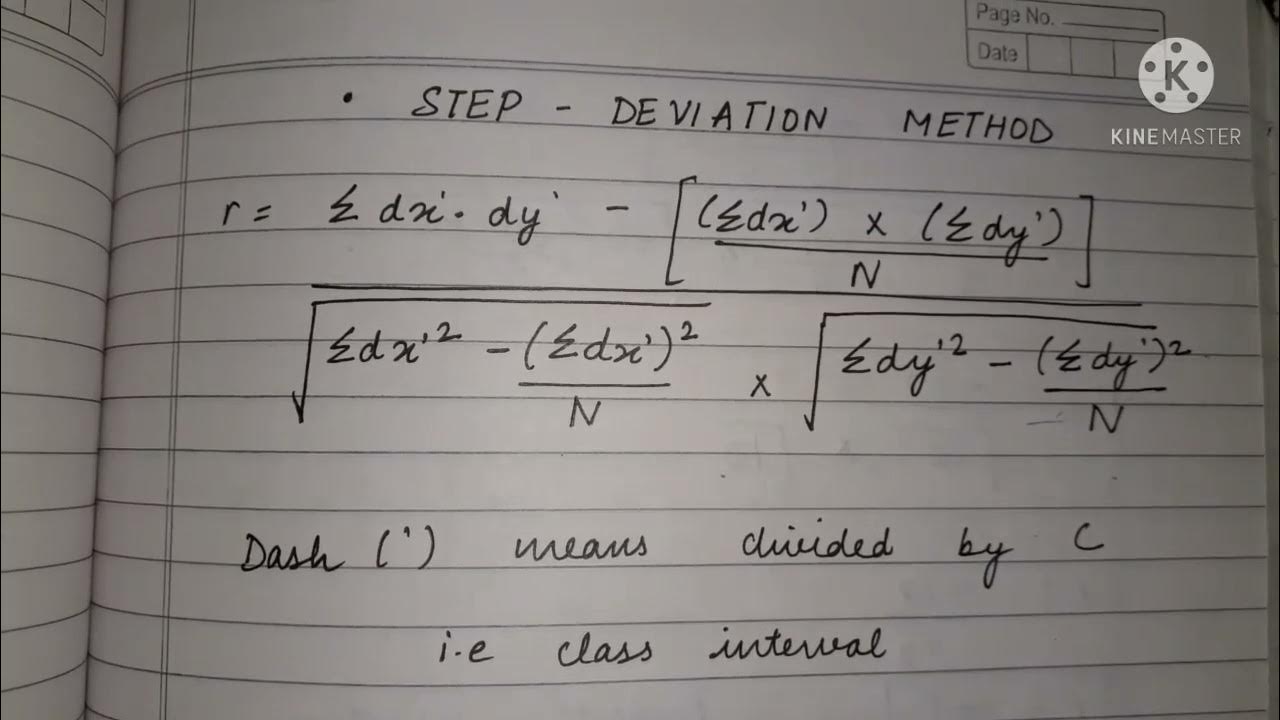 Page No.
Date
K
KINEMASTER
• STEP - DEVIATION METHOD
r = Σ dx'. dy' - [(Σdx') x (Σdy')
N]
√Σdx'² - (Σdx')²
N
x √Σdy'² - (Σdy')²
N
Dash (') means divided by C
i.e class interval